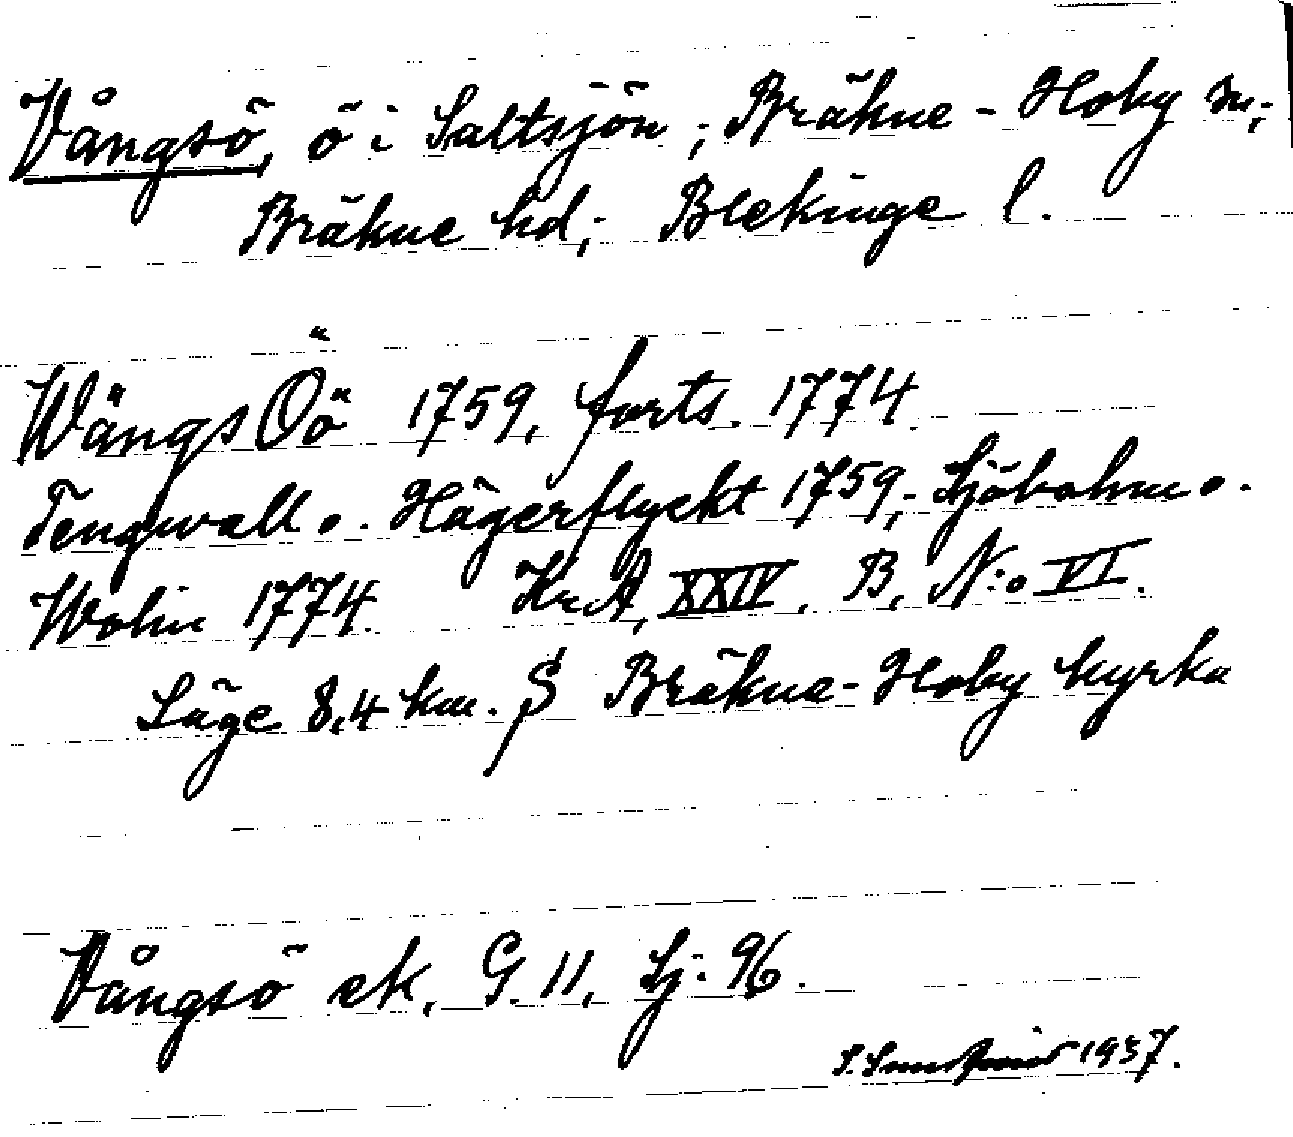 Vångsö, ö i Saltsjön; Bräkne-Hoby sn;
Bräkne hd; Blekinge l.
Wängs Öö 1759, forts. 1774
Tengwall o. Hägerflyckt 1759; Sjöbohm o.
Wolin 1774. KrA, XXIV, B, N:o VI.
Läge 8,4 km. S Bräkne-Hoby kyrka
Vångsö ek, G. 11, Sj: 96.
1937.